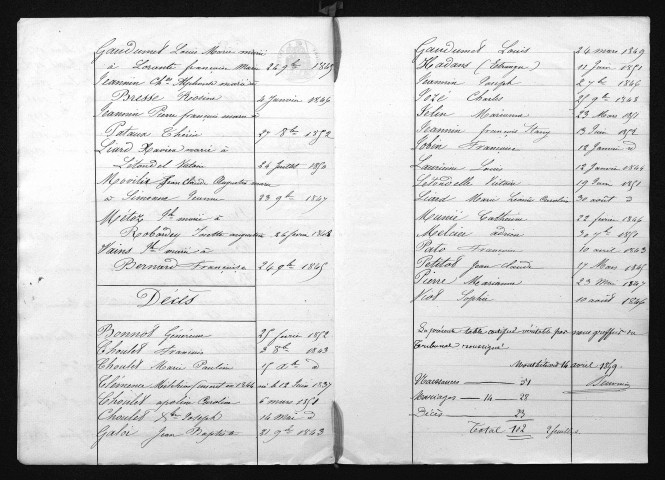 Gaudumet Louis Marie marié
à Lorante françoise Marie 24 9bre 1849
Jeannin Ch. Alphonse marié à
Bresse Rosine 4 Janvier 1846
Jeannin Pierre françois marié à
Pataux Thérèse 27 8bre 1852
Liard Xavier marié à
Letondel 24 Juillet 1850
Jean Claude Auguste marié
à Simeron Jeanne 23 9bre 1847
Métoz Jh marié à
Robardey Josette augustine 26 février 1848
Vains Jh marié à
Bernard Françoise 24 9bre 1845
Décès
Bonnot Généreuse 25 février 1852
Choulet François 3 8bre 1843
Choulet Marie Pauline 15 d
Clémence né le 12 Juin 1837
Choulet apoline Caroline 6 mars 1851
Choulet Xer Joseph 14 Mai d
Galoi Jean Baptiste 21 9bre 1843
Gaudumet Louis 24 mars 1849
Hadans (Etranger) 11 Juin 1851
Jeannin Joseph 2 7bre 1846
Jozé Charles 25 9bre 1848
Marianne 23 Mars 1851
Jeannin françois 13 Juin 1852
Jobin Françoise 12 Janvier d
Laurienne Louis 12 Janvier 1844
Letondelle Victoire 19 Juin 1851
Liard Marie Léonie Caroline 30 août d
Munié Catherine 22 février 1846
Melcier 30 7bre 1851
Pato Françoise 10 avril 1843
Petitot Jean Claude 17 Mars 1845
Pierre Marianne 23 Mai 1847
Viot Sophie 10 août 1846
La présente table certifiée véritable par nous greffier du
Tribunal soussigné
Montbéliard 14 avril 1859.
Naissances — 51
Mariages — 14 — 28
Décès — 23
Total 102 2 feuilles